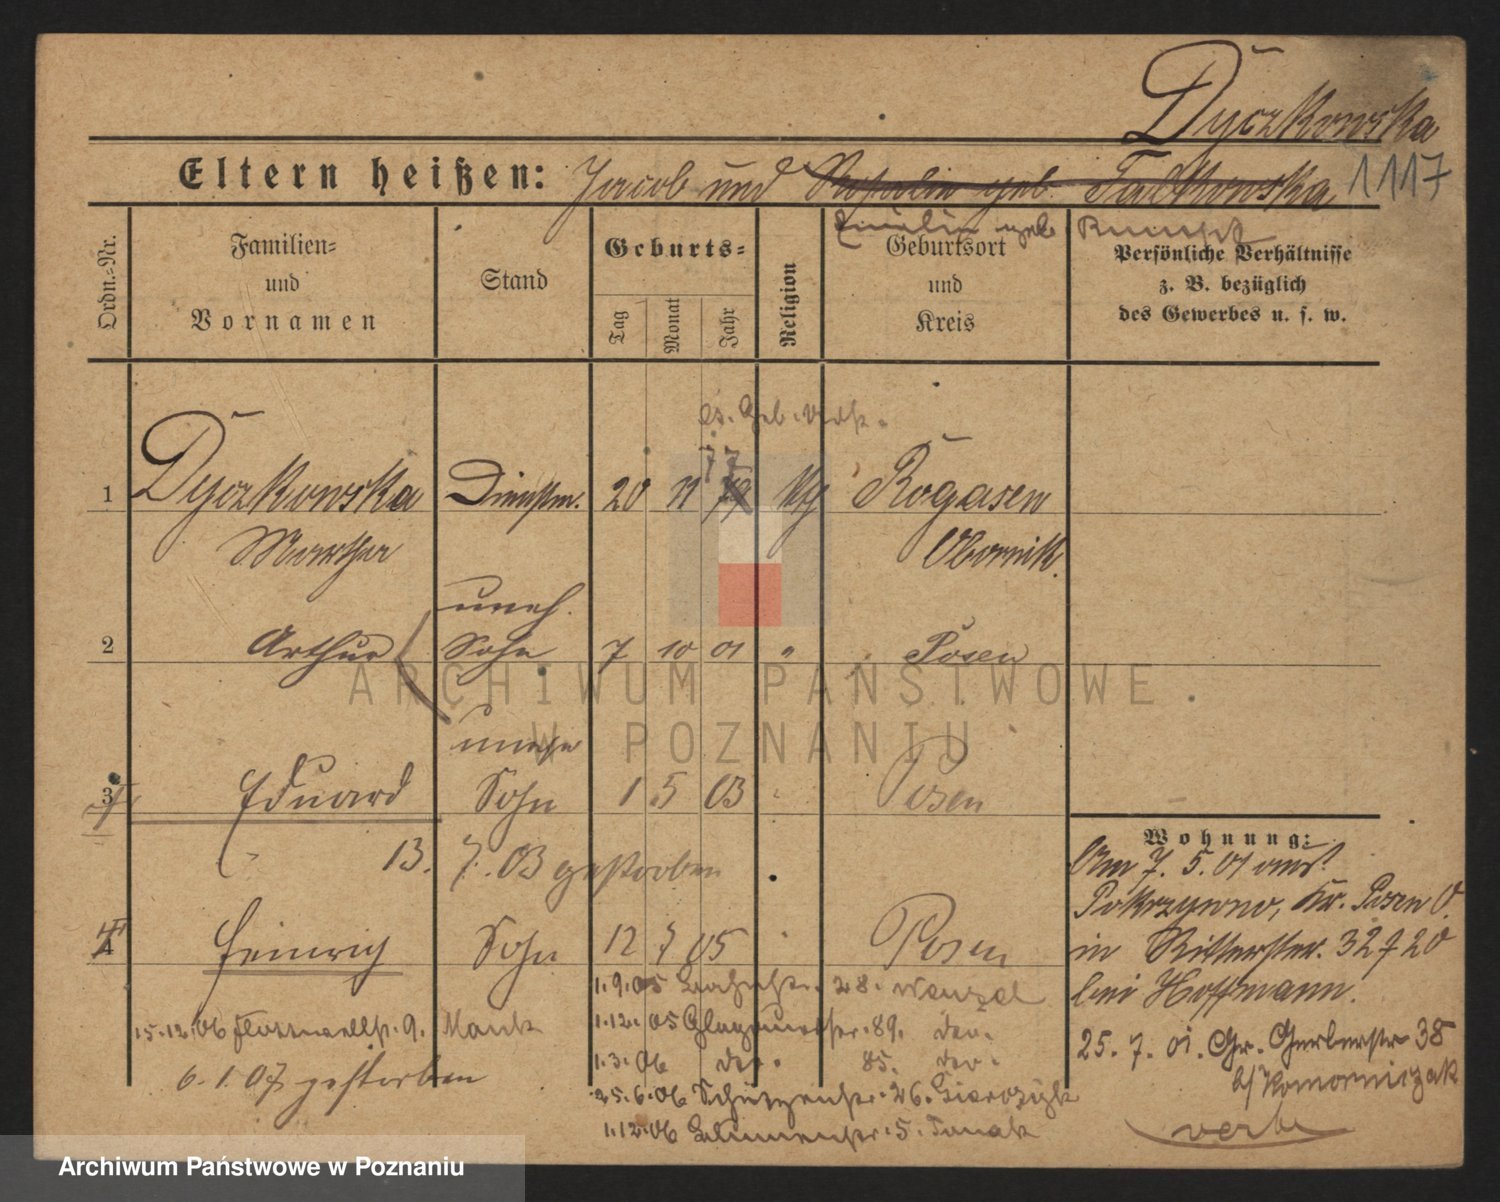 Dyczkowska
Eltern heißen: Jacob und Rosalie geb. Falkowska 1117
Emilie geb.
Ordn.-Nr.
Familien-
und
Vornamen
Stand
Geburts-
Tag
Monat
Jahr
Religion
Geburtsort
und
Kreis
Persönliche Verhältnisse
z. B. bezüglich
des Gewerbes u. s. w.
77
1 Dyczkowska Dienstm. 20 11 79 Rogasen
Martha Obornik.
uneh.
2 Arthur Sohn 7 10 01 " Posen
unehe
3 Eduard Sohn 1 5 03 Posen
13. 7. 03 gestorben
4 Heinrich Sohn 12 7 05 Posen
1.9.05 28. Wenzel
15.12.06 9.
1.12.05 89. der.
1.3.06 der. 85. der.
6.1.07 gestorben
25.6.06 Schützenstr. 26.
1.12.06 Blumenstr. 5.
Wohnung:
Am 7. 5. 01 aus
Pokrzywno, Kr. Posen O.
in Ritterstr. 32
bei Hoffmann.
25. 7. 01. Gr. Gerberstr 38
b/ Komorniczak
verte
ARCHIWUM PAŃSTWOWE
W POZNANIU
Archiwum Państwowe w Poznaniu